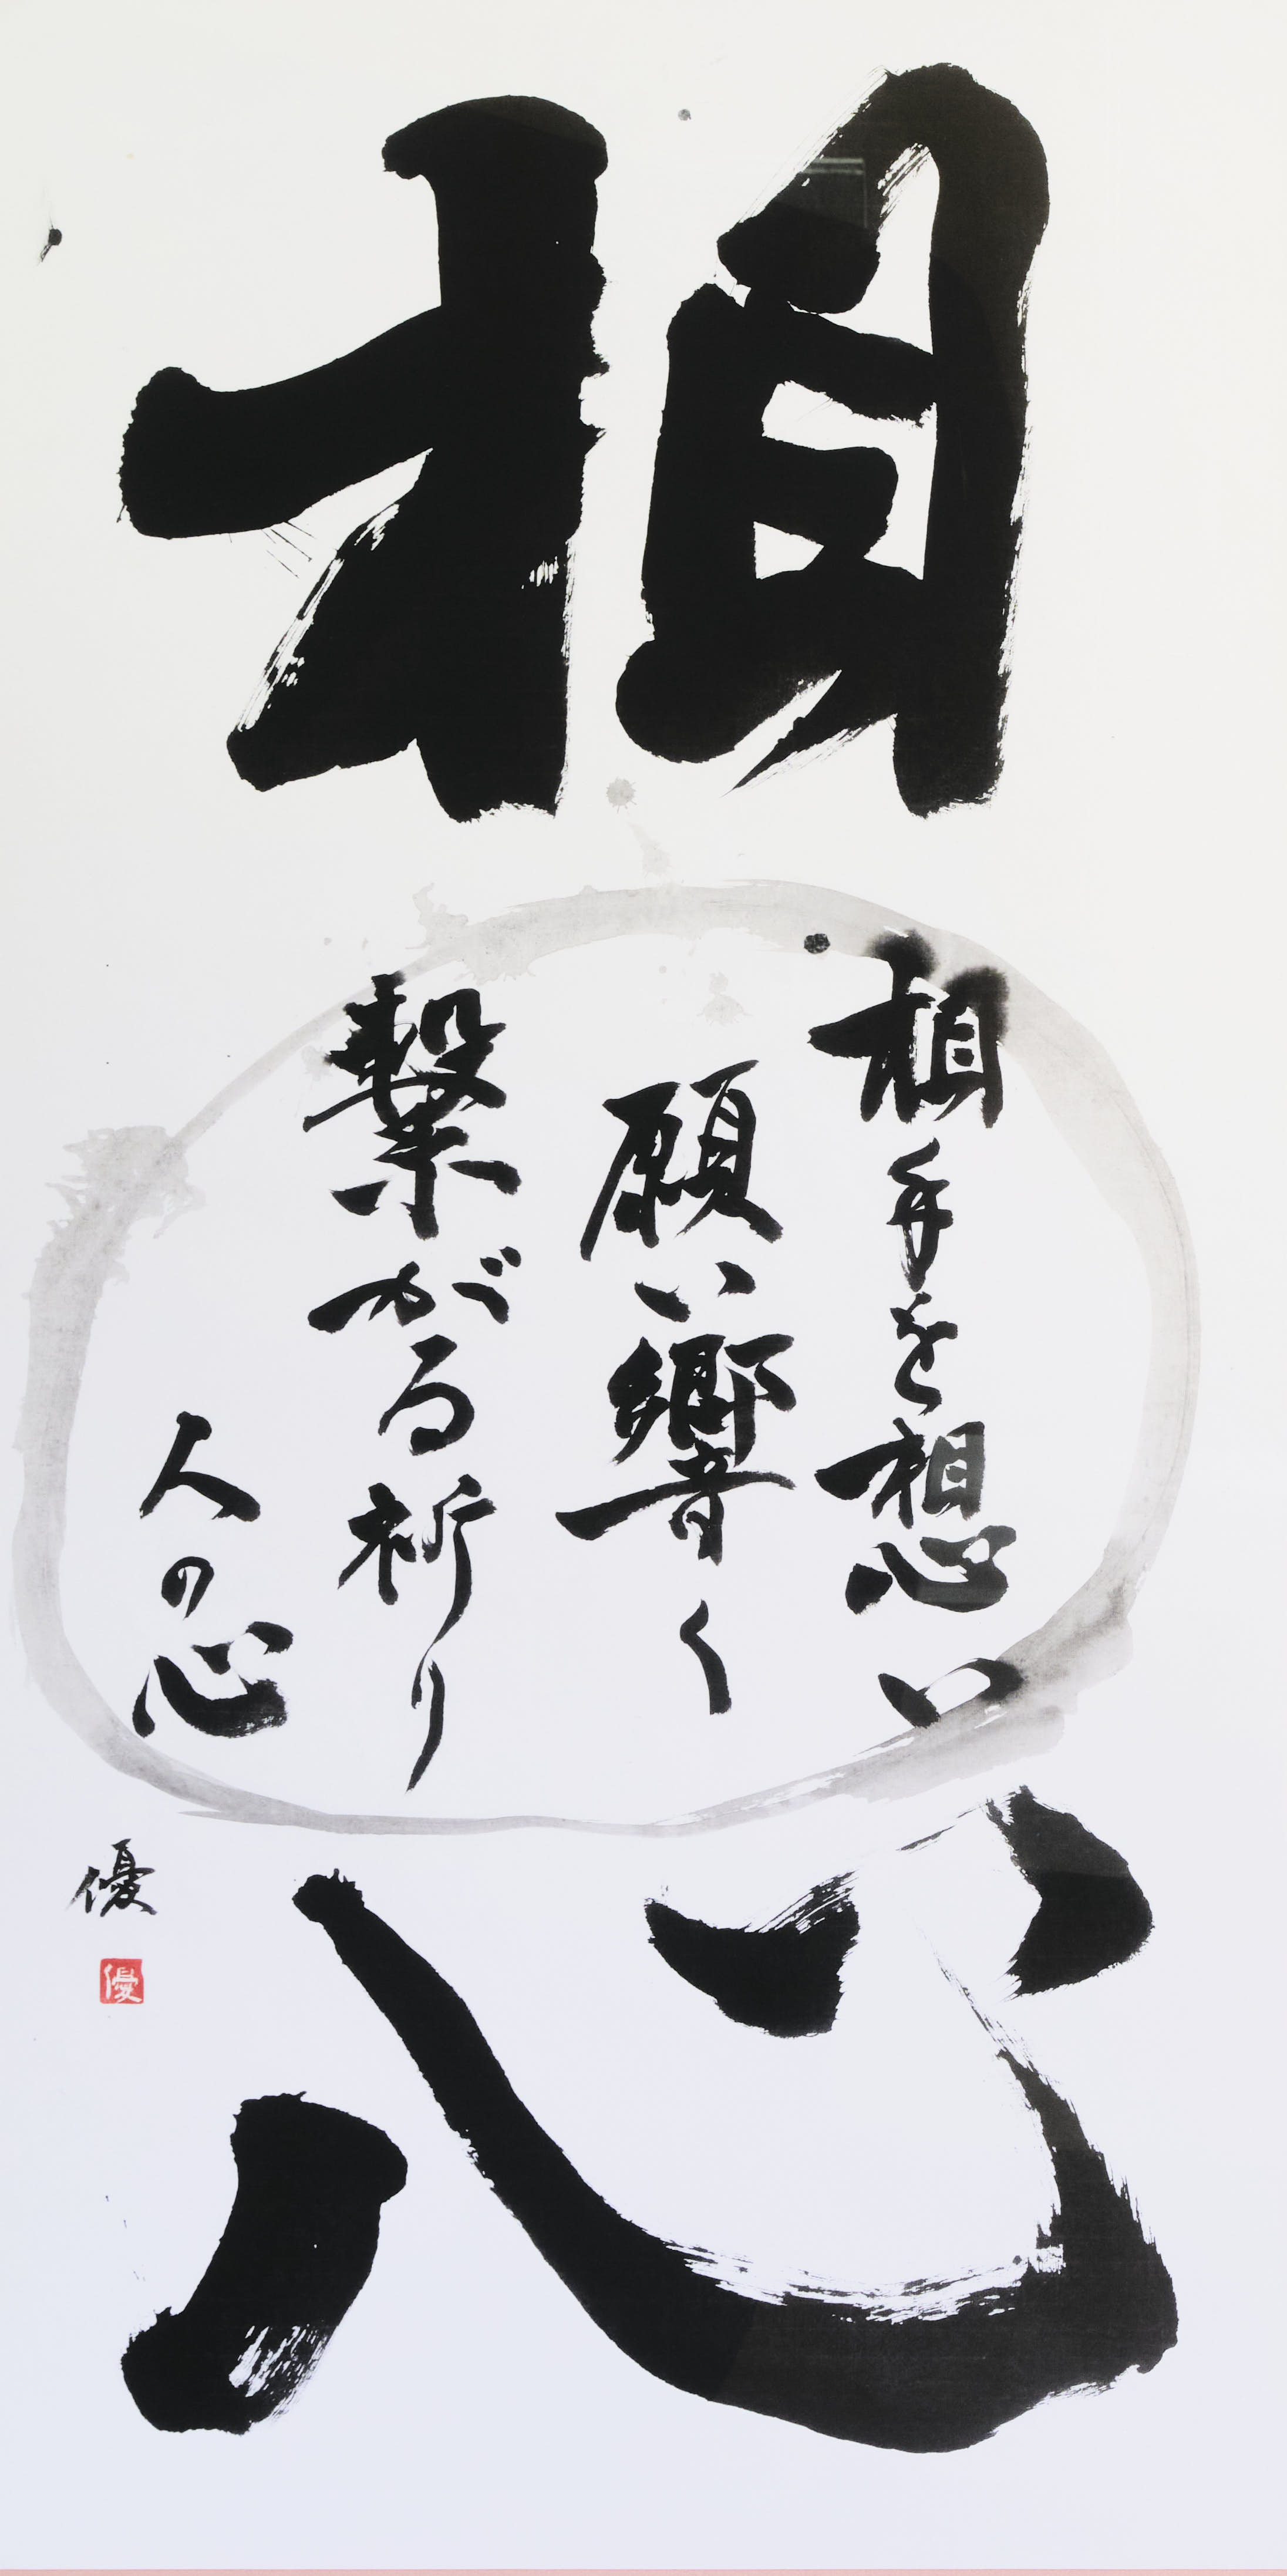 相
心
相手を想い
願い響く
繋がる祈り
人の心
優
優